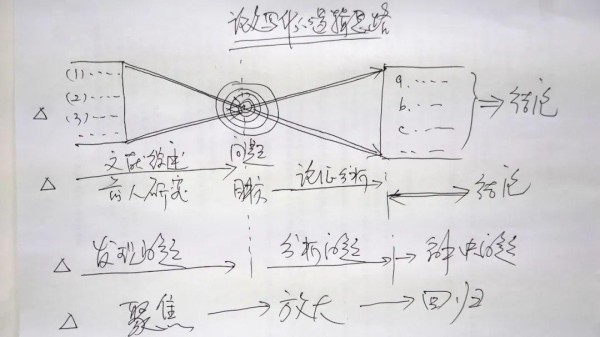 论文写作的逻辑思路
(1)
(2)
(3)
a.
b.
c
结论
文献综述 问题
前人研究 目标 论证分析 结论
发现问题 分析问题 解决问题
聚焦 放大 回归